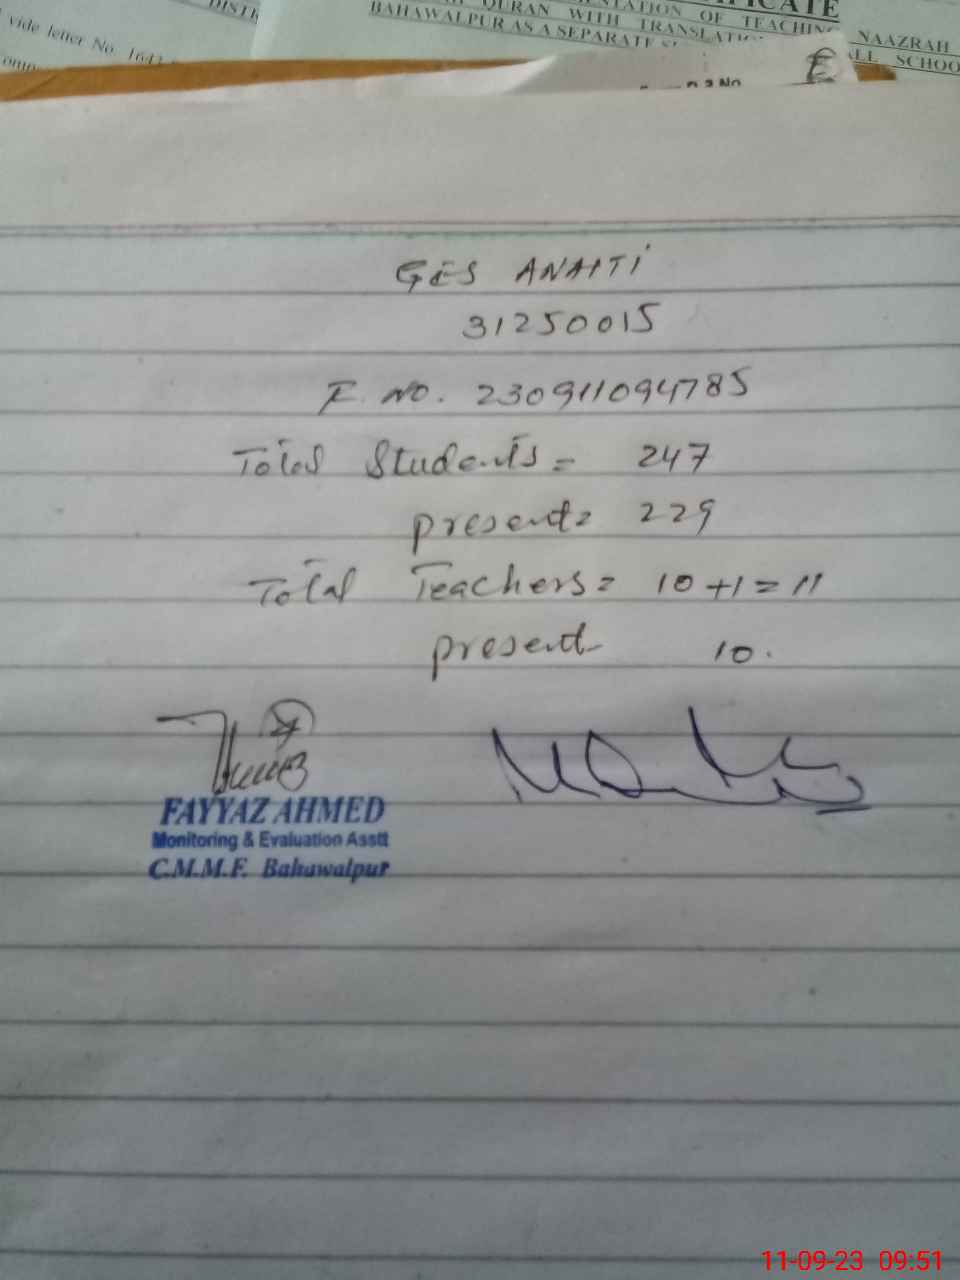 DISTR
vide letter No. 1642
IFICATE
ENTATION OF TEACHING NAAZRAH
QURAN WITH TRANSLATION
ALL SCHOO
BAHAWALPUR AS A SEPARATE
E
GES ANAITI
31250015
F. NO. 230911094785
Total Students = 247
present= 229
Total Teachers= 10+1=11
present 10.
FAYYAZ AHMED
Monitoring & Evaluation Asstt
C.M.M.F. Bahawalpur
11-09-23 09:51